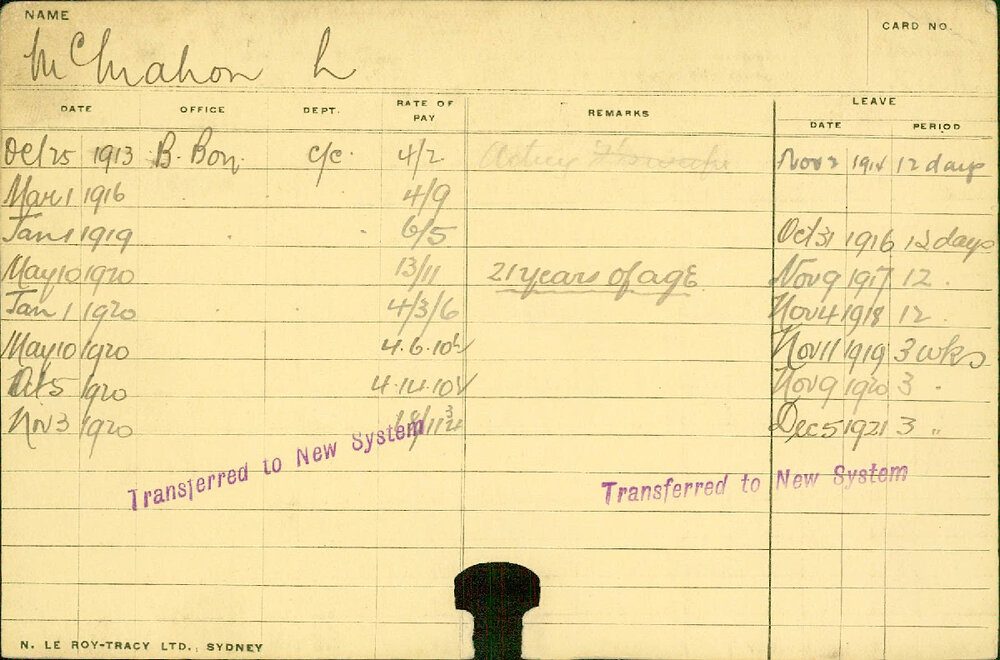 NAME
CARD NO.
McMahon L
DATE OFFICE DEPT. RATE OF PAY REMARKS LEAVE
DATE PERIOD
Oct 25 1913 B. Bon c/c. 4/2 Acting Nov 2 1914 12 days
Mar 1 1916 4/9
Jan 1 1919 6/5 Oct 31 1916 12 days
May 10 1920 13/11 21 years of age. Nov 9 1917 12.
Jan 1 1920 4/3/6 Nov 4 1918 12.
May 10 1920 4.6.10½ Nov 11 1919 3 wks
Oct 5 1920 4.14.10½ Nov 9 1920 3 .
Nov 3 1920 Dec 5 1921 3 "
Transferred to New System
Transferred to New System
N. LE ROY-TRACY LTD., SYDNEY